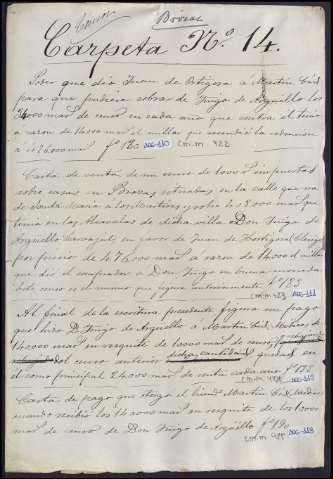 Censos Brozas
Carpeta Nº 14.
Poder que dió Juan de Ortigosa a Martin Cid
para que pudiera cobrar de Iñigo de Arguello los
mad de censo en cada año que contra el tenia
a razon de 14.000 el millar que ascendia la redencion
a fº 180 AGG-110 cm.m 422
Carta de venta de un censo de impuestos
sobre casas en Brozas, situadas en la calle que va
de Santa Maria á los Martires y sobre mas que
tenia en las Alcavalas de dicha villa Don Iñigo de
Arguello Carvajal, en favor de Juan de Hortigosa (Clerigo)
por precio de 476.000 mad a razon de 14.000 el millar
que dió el comprador a Don Iñigo en buena moneda
Este censo es el mismo que figura anteriormente fº 183
cm.m 423 AGG-111
Al final de la escritura precedente figura un pago
que hizo D. Iñigo de Arguello á Martin Cid
14.000 mad en resguite de 1.000 mad de censo,
del censo anterior quedando en
el como principal 24.000 mad de renta cada año fº 188
Carta de pago que otorga el licendo Martin Cid
cuando recibió los 14.000 mad en resguite de los 1.000
mad de censo de Don Iñigo de Argüello fº 190